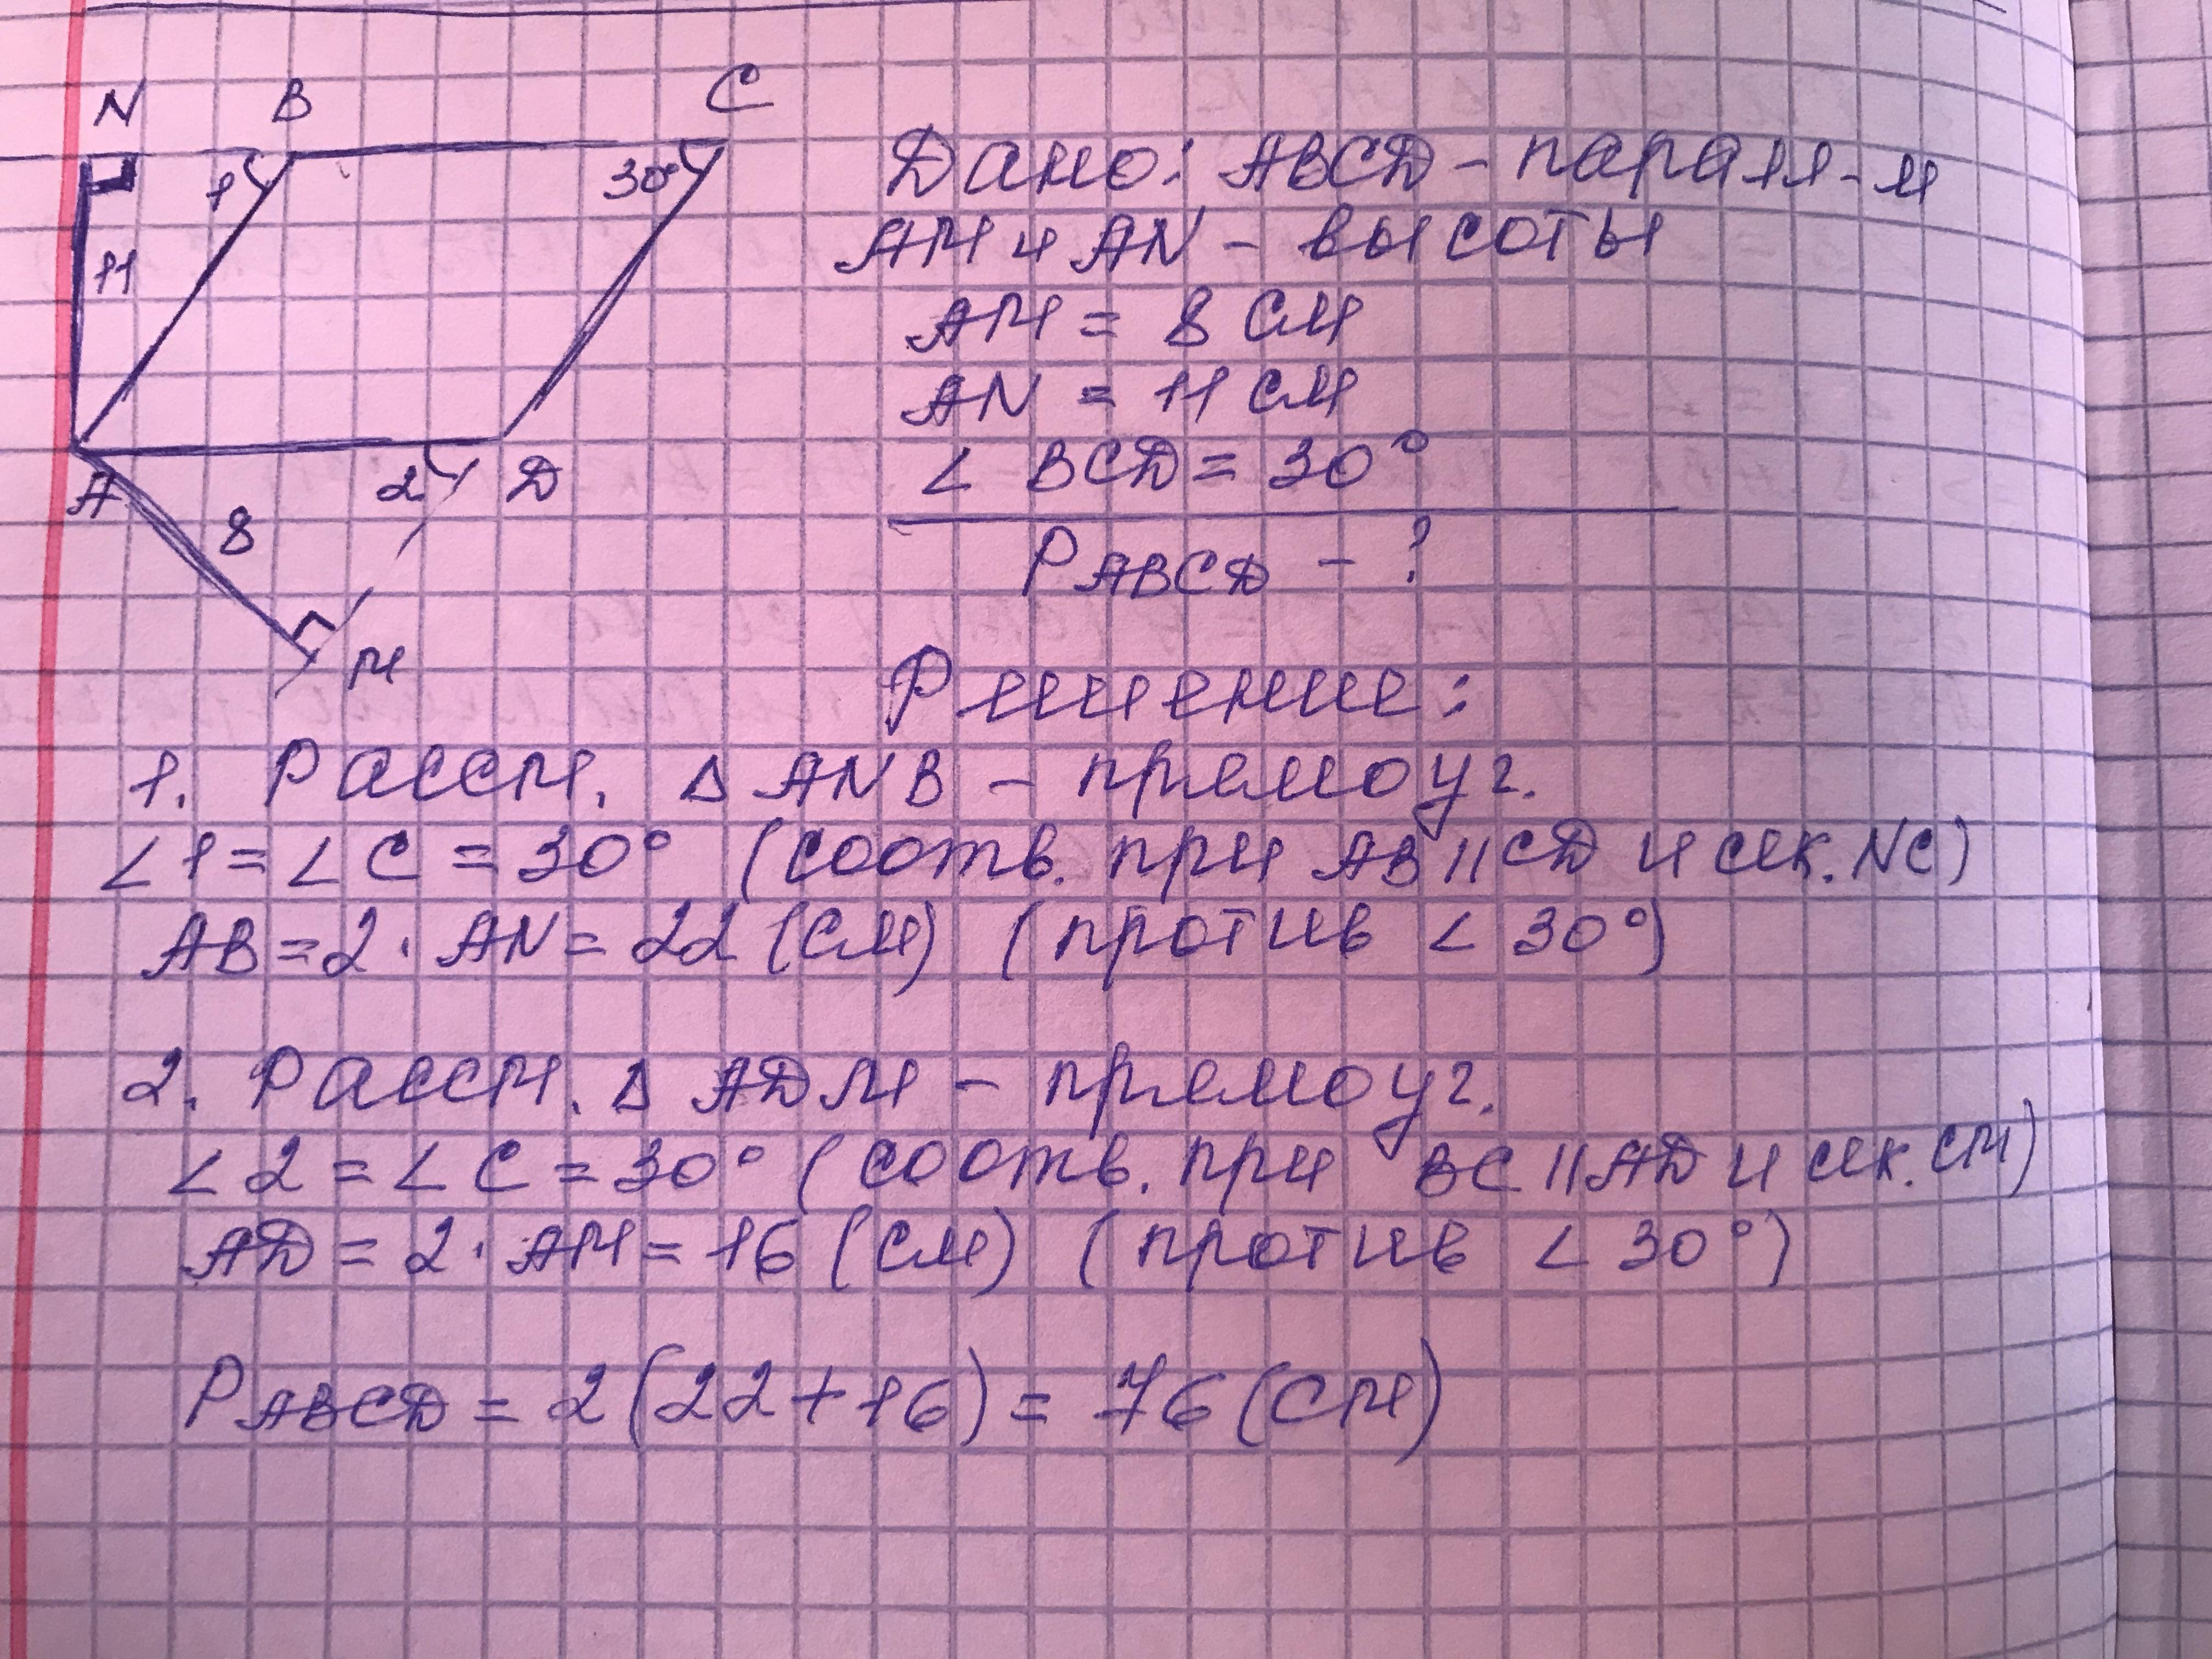 N B C
1 30°
11
A 2 D
8
M
Дано: ABCD - паралл-м
AM и AN - высоты
AM = 8 см
AN = 11 см
∠ BCD = 30°
PABCD - ?
Решение:
1. Рассм. Δ ANB - прямоуг.
∠1 = ∠C = 30° (соотв. при AB || CD и сек. NC)
AB = 2 · AN = 22 (см) (против ∠ 30°)
2. Рассм. Δ ADM - прямоуг.
∠2 = ∠C = 30° (соотв. при BC || AD и сек. CM)
AD = 2 · AM = 16 (см) (против ∠ 30°)
PABCD = 2(22+16) = 76 (см)